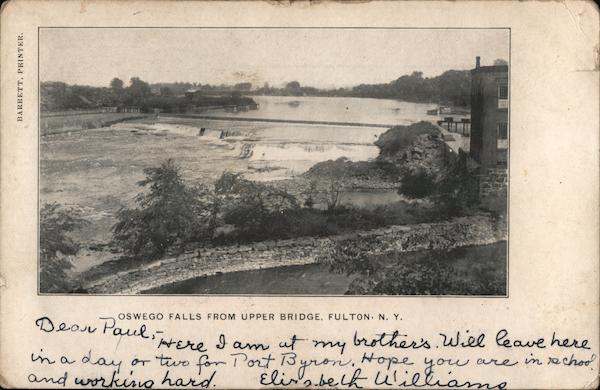 BARRETT, PRINTER.
OSWEGO FALLS FROM UPPER BRIDGE, FULTON, N. Y.
Dear Paul,- Here I am at my brother's. Will leave here
in a day or two for Port Byron. Hope you are in school
and working hard. Elizabeth Williams